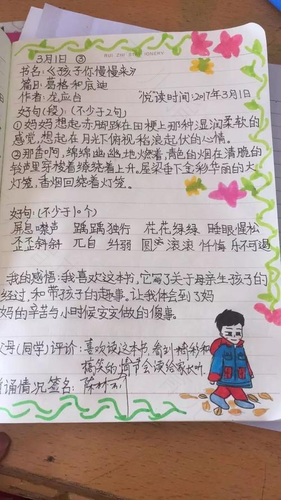 3月1日 ③
书名:《孩子你慢慢来》
篇目:葛格和底迪
作者:龙应台 悦读时间:2017年3月1日
好句(段)(不少于2句)
①妈妈想起赤脚踩在田埂上那种湿润柔软的
感觉,想起在月光下俯视稻浪起伏的心情。
③那首啊,绵绵幽幽地燃着,青色的烟在清脆的
铃声里穿梭着缭绕着上升。屋梁垂下金彩华丽的大
灯笼,香烟回绕着灯笼。
好句:(不少于10个)
屏息噤声 踽踽独行 花花绿绿 睡眼惺忪
歪歪斜斜 兀自 纤弱 圆声滚滚 忏悔 乐不可遏
我的感悟:我喜欢这本书,它写了关于母亲生孩子的
经过,和带孩子的趣事,让我体会到了妈
妈的辛苦与小时候安安做的傻事。
父母(同学)评价:喜欢读这本书,看到精彩和
搞笑的情节会读给家长听。
诵情况签名: